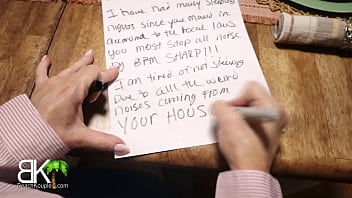 I have had many sleepless
nights since you moved in
according to the local laws
you meist stop all noise
by 8PM SHARP!!!
I am tired of not sleeping
Due to alll the weird
noises coming from
YOUR HOUS
BK
BeachKouples.com